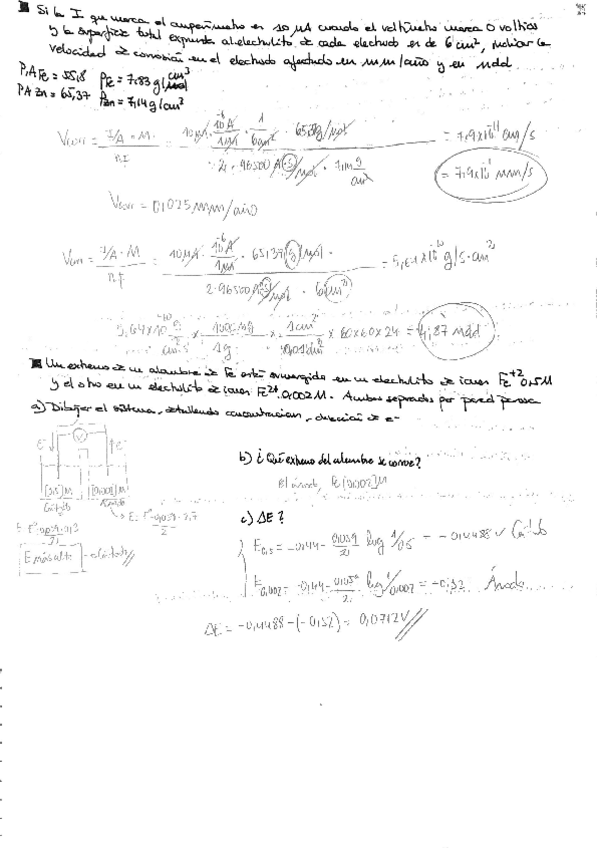 Si la I que marca el amperímetro es 10 μA cuando el voltímetro marca 0 voltios
y la superficie total expuesta al electrolito de cada electrodo es de 6 cm², indicar la
velocidad de corrosión en el electrodo afectado en mm/año y en mdd
P.A Fe = 55,8 ρFe = 7,83 g/cm³
P.A Zn = 65,37 ρZn = 7,14 g/cm³
Vcorr = I/A · M / n.F = 10 μA · 10⁻⁶A / 1μA · 1 / 6cm² · g/mol / 2 · 96500 A·s/mol · 7,14 g/cm³ = 7,9x10⁻¹¹ cm/s
= 7,9x10 mm/s
Vcorr = 0,025 mm/año
Vcorr = I/A · M / n.F = 10 μA · 10⁻⁶A / 1μA · 65,37 g/mol / 2 · 96500 A·s/mol · 6cm² = x10⁻¹⁰ g/s·cm²
5,64x10⁻¹⁰ g / cm²·s x 1000mg / 1g x 1cm² / 0,01dm² x 60x60x24 = 4,87 mdd
Un extremo de un alambre de Fe está sumergido en un electrolito de iones Fe⁺² 0,5M
y el otro en un electrolito de iones Fe²⁺ 0,002M. Ambos separados por pared porosa
a) Dibujar el sistema, detallando concentracion, dirección de e⁻
e⁻ V e⁻
[0,5]M [0,002]M
Cátodo Ánodo
E más alto → cátodo
b) ¿Qué extremo del alambre se corroe?
El ánodo, Fe [0,002]M
c) ΔE?
E0,5 = -0,44 - 0,059/2 log 1/0,5 = -0,4488 V Cátodo
E0,002 = -0,44 - 0,059/2 log 1/0,002 = -0,52 Ánodo
ΔE = -0,4488 - (-0,52) = 0,0712V